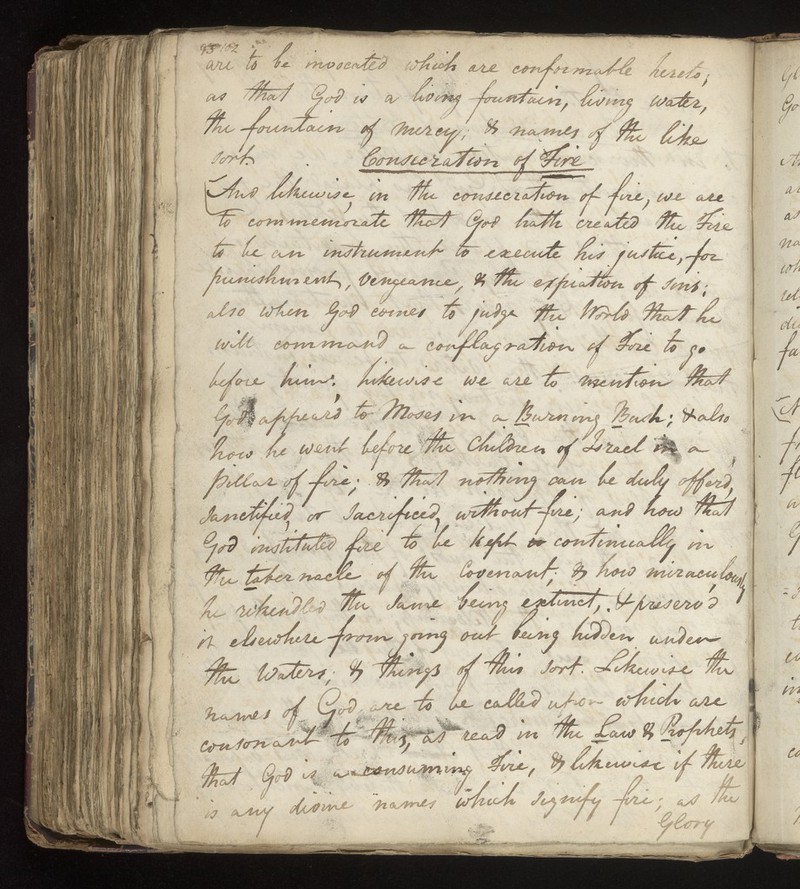 93 102
are to be invocated which are conformable hereto;
as that God is a living fountain, living water,
the fountain of mercy; & names of the like
sort.
Consecration of Fire
And likewise, in the consecration of fire, we are
to commemorate that God hath created the Fire
to be an instrument to execute his justice, for
punishment, vengeance, & the expiation of sins;
also when God comes to judge the World that he
will command a conflagration of Fire to go
before him: likewise we are to mention that
God appear'd to Moses in a Burning Bush; & also
how he went before the Children of Israel in a
pillar of fire; & that nothing can be duly offer'd,
sanctified, or sacrificed, without fire; and how that
God instituted fire to be kept continually in
the tabernacle of the Covenant; & how miraculously
he rekindled the same being extinct, & preserv'd
it elsewhere from going out being hidden under
the Waters; & things of this sort. Likewise the
names of God are to be called upon which are
consonant to this, as read in the Law & Prophets,
that God is a consuming Fire, & likewise if there
is any divine names which signify fire; as the
Glory